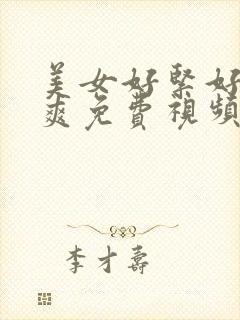 美女好緊好
爽免費視頻
李才壽